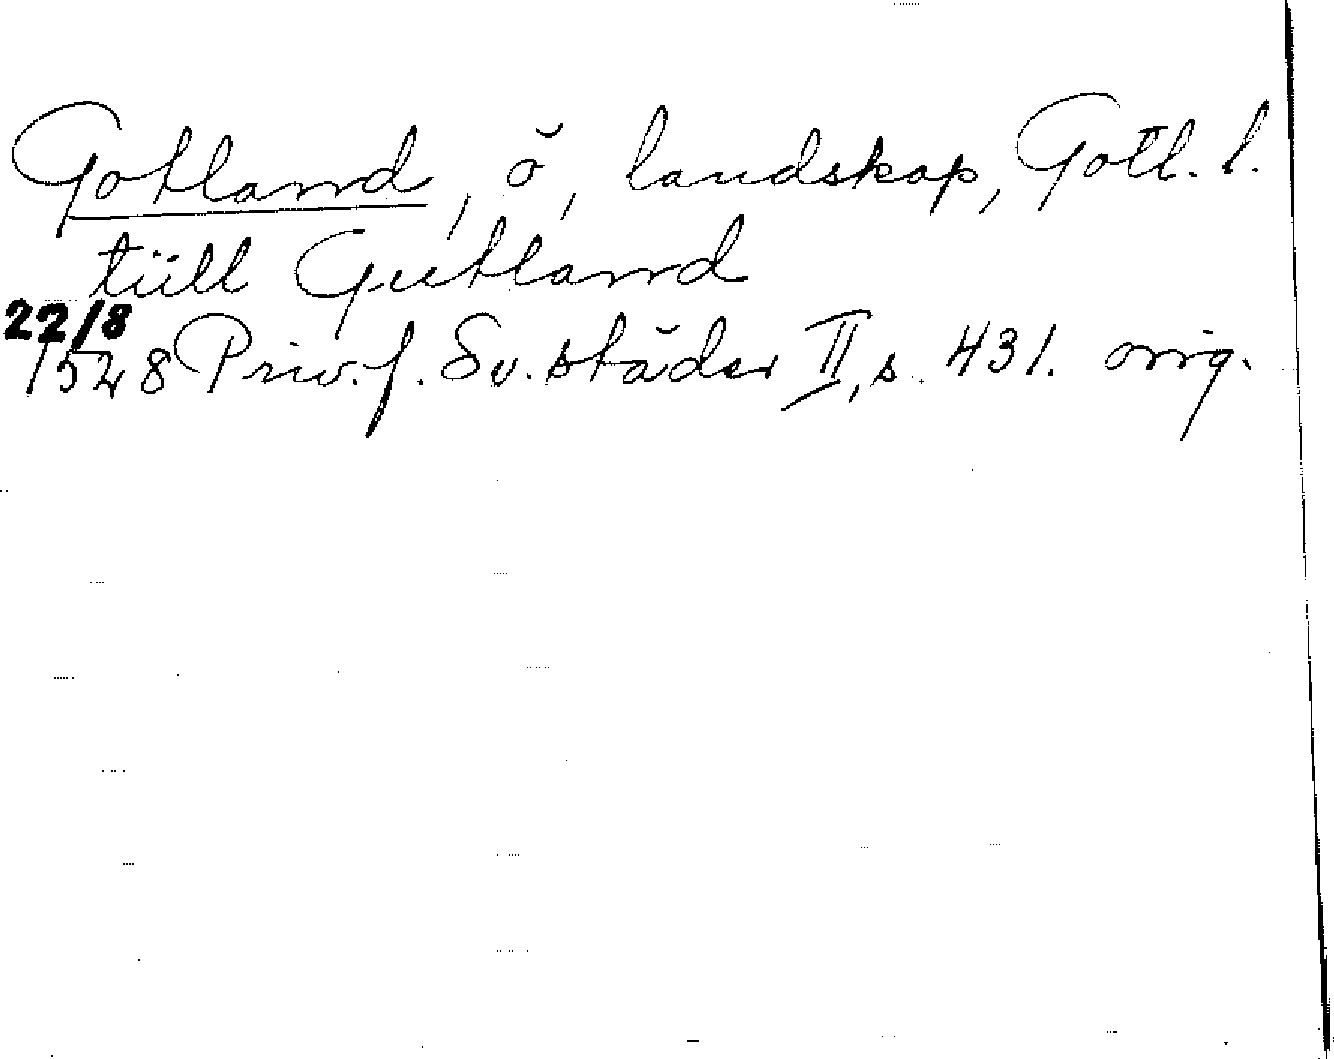 Gotland, ö, landskap, Gotl. l.
tüll Gutland
22/8
1528 Priv. f. Sv. städer II, s. 431. orig.